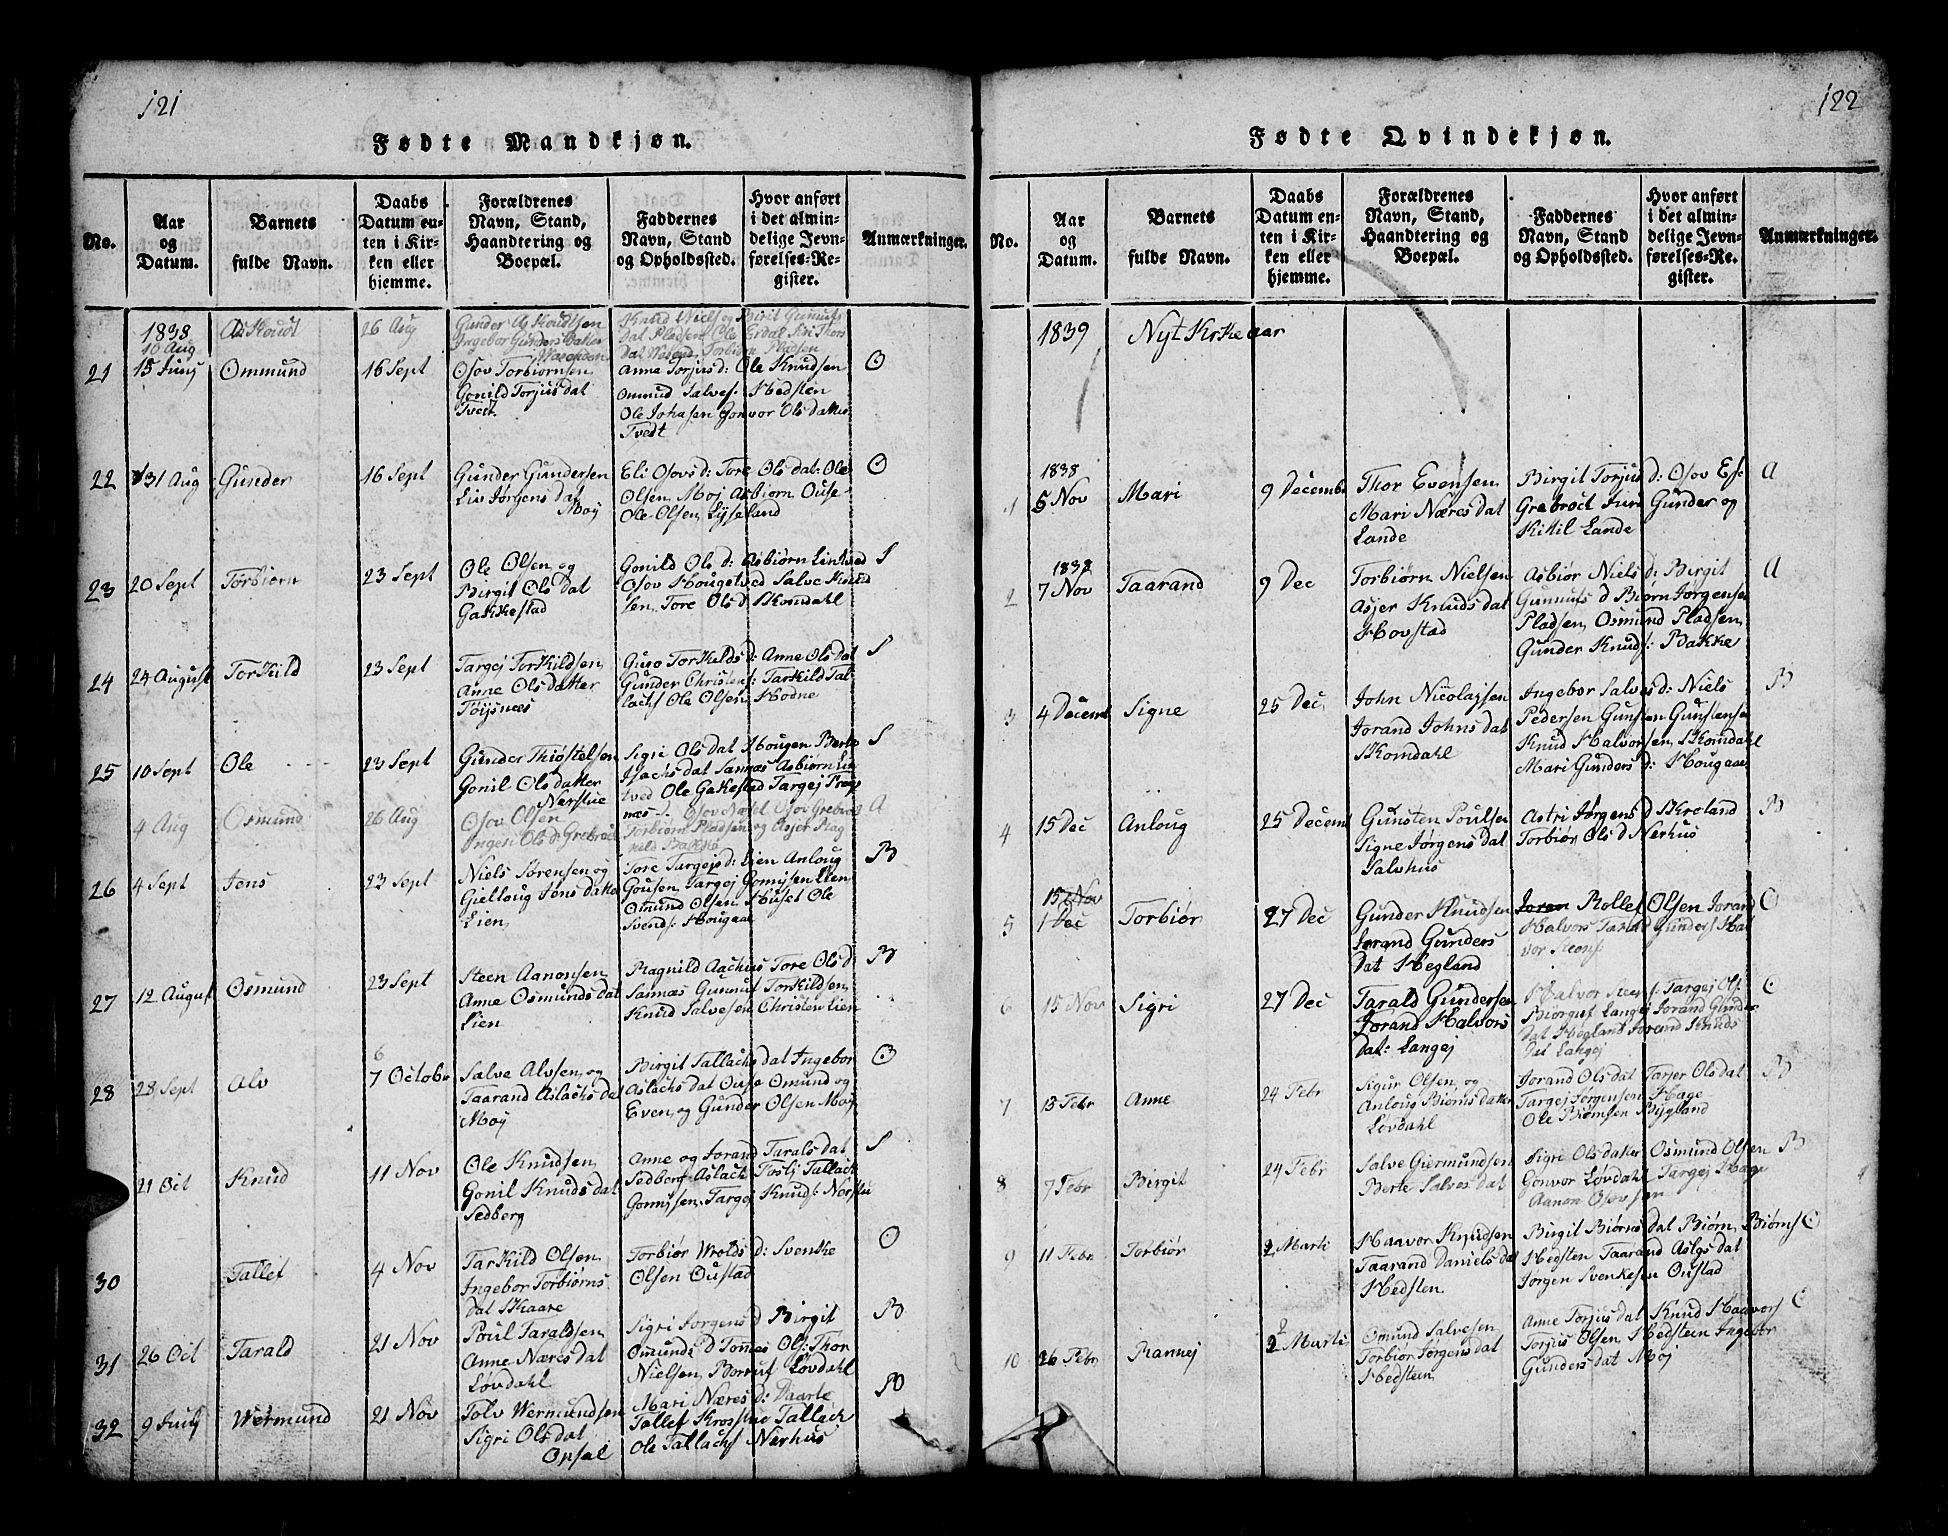 121
Fødte Mandkjøn.
No.
Aar
og
Datum.
Barnets
fulde Navn.
Daabs
Datum en-
ten i Kir-
ken eller
hjemme.
Forældrenes
Navn, Stand,
Haandtering og
Boepæl.
Faddernes
Navn, Stand
og Opholdssted.
Hvor anført
i det almin-
delige Jevn-
førelses-Re-
gister.
Anmærkninger.
1838
10 Aug
26 Aug
21 15 Juny Ommund 16 Sept
Osov Torbiørnsen
Gonild Torjus dat
Tvedt
Anne Torjus d: Ole Knudsen
Omund Salves: Hedsten
Ole Johasen Gonvor Ols datter
Tvedt
O
22 31 Aug Gunder 16 Sept
Gunder Gundersen
Liv Jørgens dat
Moy
Eli Osovs d: Tore Ols dat: Ole
Olsen Moj Asbiørn Ouse-
Ole Olsen Lyseland
O
23 20 Sept Torbiørn 23 Sept
Ole Olsen og
Birgit Ols dat
Gakkestad
Gonild Ols d: Asbiørn Lintved
Osov Hougetved Salve
Tore Ols d Skomdahl
S
24 24 August Torkild 23 Sept
Targej Torkildsen
Anne Ols datter
Tøijsnæs
Guro Torkelds d: Anne Ols dat
Gunder Christens: Tarkild Tal-
lachs Ole Olsen Hodne
S
25 10 Sept Ole 23 Sept
Gunder Thiøstelsen
Gonil Ols datter
Nerstue
Sigri Ols dat Hougen Berte
Isachs dat Sannæs Asbiørn Lin
tved Ole Gakestad Targej
næs
S
4 Aug Osmund 26 Aug
Osov Olsen
A
26 4 Sept Jens 23 Sept
Niels Sørensen og
Gielloug Jens datter
Lien
Tore Targejs d: Lien Anloug
Gousen Targej Gomysen Lien
Omund Olsen Huset Ole
Svends: Hougaa
B
27 12 August Osmund 23 Sept
Steen Aanonsen
Anne Osmunds dat
Lien
Ragnild Aachus Tore Ols d
Sannæs Gunnuf Torkildsen
Knud Salvesen Christen Lien
B
28 28 Sept Alv
6
7 Octobr
Salve Alvsen og
Taarand Aslachs dat
Moy
Birgit Tallachs dat Ingebor
Aslachs dat Ouse Omund og
Even og Gunder Olsen Moy
O
21 Oct Knud 11 Nov
Ole Knudsen
Gonil Knuds dat
Sedberg
Anne og Jorand Tarals dat
Sedberg Aslach Toslj Tallach
Gomysen, Targej Knuds: Nerstu
S
30 Tallef 4 Nov
Tarkild Olsen
Ingebor Torbiørns
dat Skaare
Torbiør Wrolds d: Svenke
Olsen Oustad
O
31 26 Oct Tarald 21 Nov
Poul Taraldsen
Anne Næres dat
Løvdahl
Sigri Jørgens d Birgit
Omunds d Tomes Ols: Thor
Nielsen, Borruf Løvdahl
B
32 9 July Wermund 21 Nov
Tolv Wermundsen
Sigri Ols dat
Opsal
Mari Næres d: Daarle
Tallef Krosstue Tallach
Ole Tallachs Nerhus
B
122
Fødte Qvindekjøn.
No.
Aar
og
Datum.
Barnets
fulde Navn.
Daabs
Datum en-
ten i Kir-
ken eller
hjemme.
Forældrenes
Navn, Stand,
Haandtering og
Boepæl.
Faddernes
Navn, Stand
og Opholdssted.
Hvor anført
i det almin-
delige Jevn-
førelses-Re-
gister.
Anmærkninger.
1839 Nyt Kirke aar
1838
1 5 Nov Mari 9 Decembr
Thor Evensen
Mari Næres dat
Lande
Birgit Torjus d: Osov
Grebroct Juri Gunder og
Kittil Lande
A
1838
2 7 Nov Taarand 9 Dec
Torbiørn Nielsen
Asjer Knuds dat
Hovstad
Asbiør Niels d: Birgit
Gunnufs d Biørn Jørgensen
Pladsen, Osmund Pladsen
Gunder Knuds: Bakke
A
3 4 Decemb Signe 25 Dec
John Nicolajsen
Jorand Johns dat
Skomdahl
Ingebor Salves d: Niels
Pedersen Gunsten Gunstensen
Knud Halvorsen, Skomdahl
Mari Gunders d: Hougaas
B
4 15 Dec Anloug 25 Decemb
Gunsten Poulsen
Signe Jørgens dat
Salvhus
Astri Jørgens d Skreland
Torbiør Ols d Nerhus
B
15 Nov
5 1 Dec Torbiør 27 Dec
Gunder Knudsen
Jorand Gunders
Dat Hegland
Rollef Olsen Jorand
Halvors Tarald Gunders Hal
vor Steens
O
6 15 Nov Sigri 27 Dec
Tarald Gundersen
Jorand Halvors
Dat: Langej
Halvor Steens: Targej Ols
Biorguf Langej Jorand Gunder
Dat Hegland Jorand Knuds
Dat Langej
O
7 13 Febr Anne 24 Febr
Sigur Olsen og
Anloug Biørns datter
Løvdahl
Jorand Ols dat Tarjer Ols dat
Targej Jørgensen Hage
Ole Biørnsen Bygland
B
8 7 Febr Birgit 24 Febr
Salve Giermundsen
Berte Salves dat
Sigri Ols datter Osmund Olsen
Gonvor Løvdahl Targej Hage
Aanon Osovsen
B
9 11 Febr Torbiør 2 Marti
Haavor Knudsen
Taarand Daniels dat
Hedsten
Birgit Biørns dat Biørn Biørns
Hedsten Taarand Aslgs dat
Jørgen Svenkesen Oustad
O
10 26 Febr Rannej 2 Marti
Omund Salvesen
Torbiør Jørgens dat
Hedstein
Anne Torjus dat Knud Haavors
Torjus Olsen Hedstein Ingebor
Gunders dat Moj
O